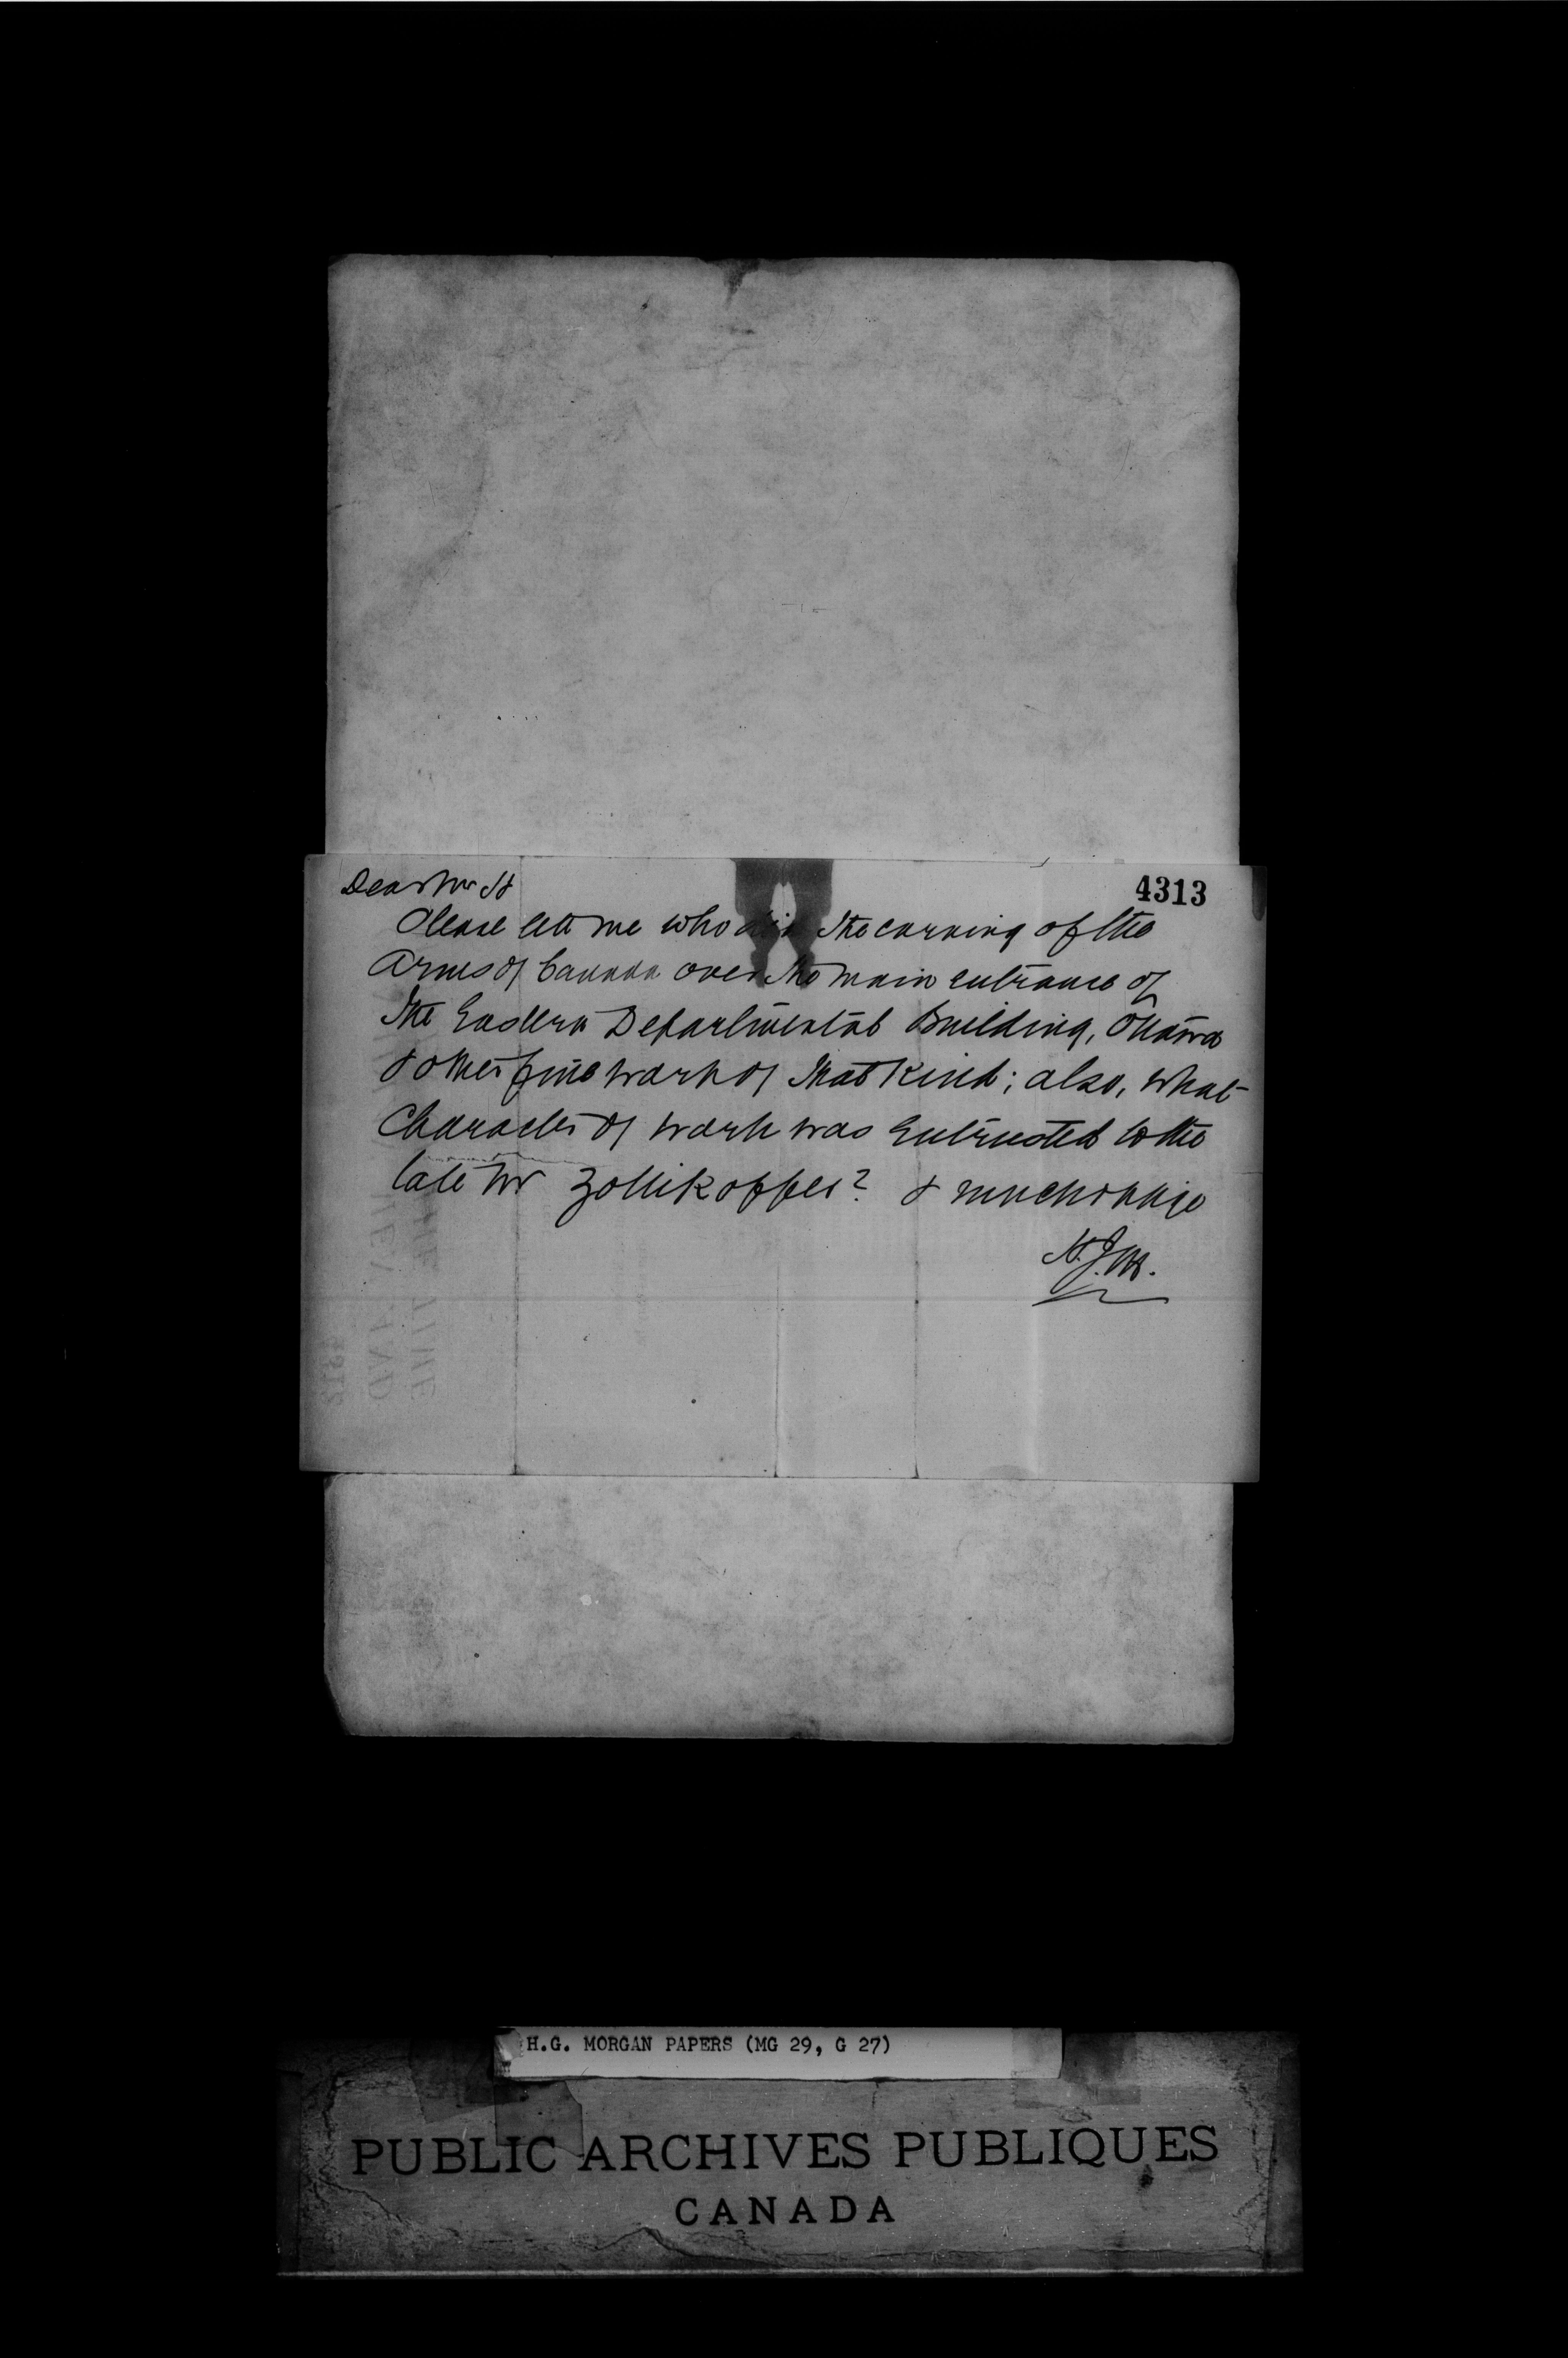 Dear Mr H
4313
Please tell me who did the carving of the
Arms of Canada over the main entrance of
the Eastern Departmental Building, Ottawa
& other fine work of that kind; also, what
character of work was entrusted to the
late Mr Zollikoffer? & much oblige
H.J.M.
H.G. MORGAN PAPERS (MG 29, G 27)
PUBLIC ARCHIVES PUBLIQUES
CANADA